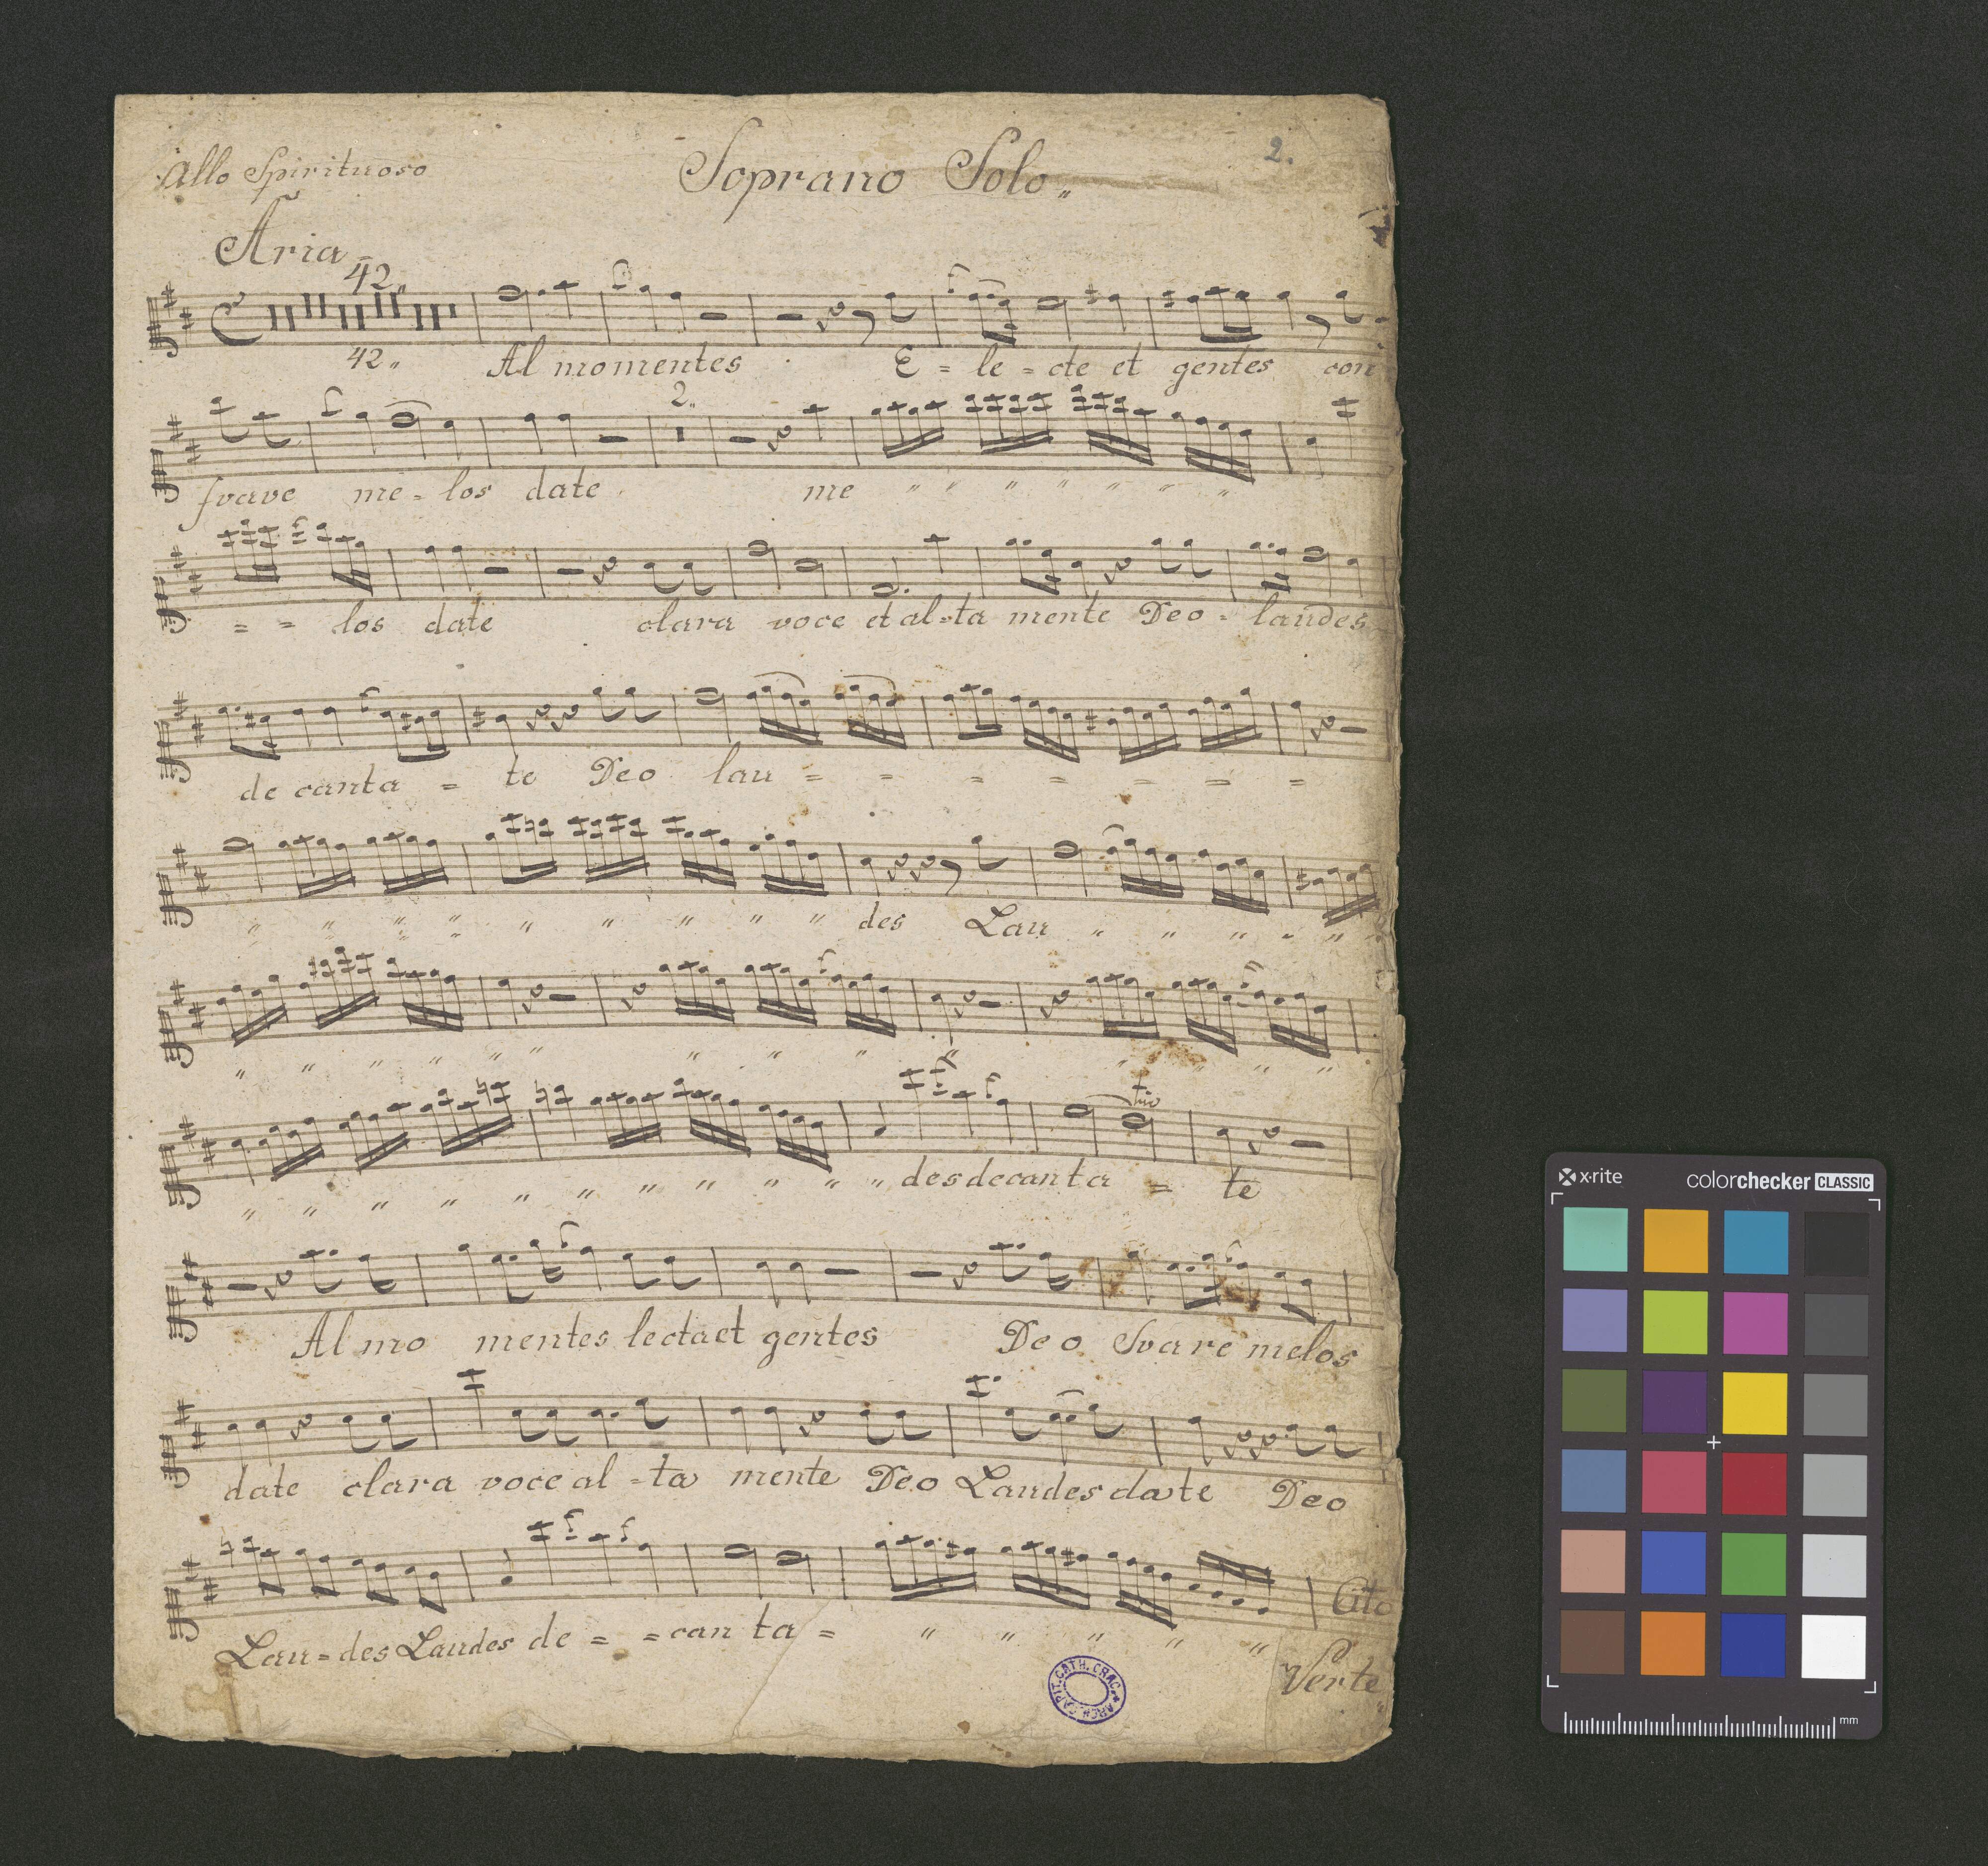 Allo Spirituoso
Soprano Solo„
2.
Aria
42„
42„ Al momentes E = le = cte et gentes con
2„
svave me = los date me „ „ „ „ „ „ „
= = los date clara voce et al=ta mente Deo = laudes
de canta = te Deo lau = = = = = = =
„ „ „ „ „ „ „ „ „ des Lau „ „ „ „ „
„ „ „ „ „ „ „ „ „ „ „ „ „ „
„ „ „ „ „ „ „ „ „ „ „ des decanta = te
Al mo mentes lectaet gentes Deo Svave melos
date clara voce al =ta mente Deo Laudes date Deo
Lau=des Laudes de = =can ta = „ „ „ „ „
Cito
Verte
CAPIT. CATH. CRAC. ★ ARCH.
x·rite
colorchecker CLASSIC
mm